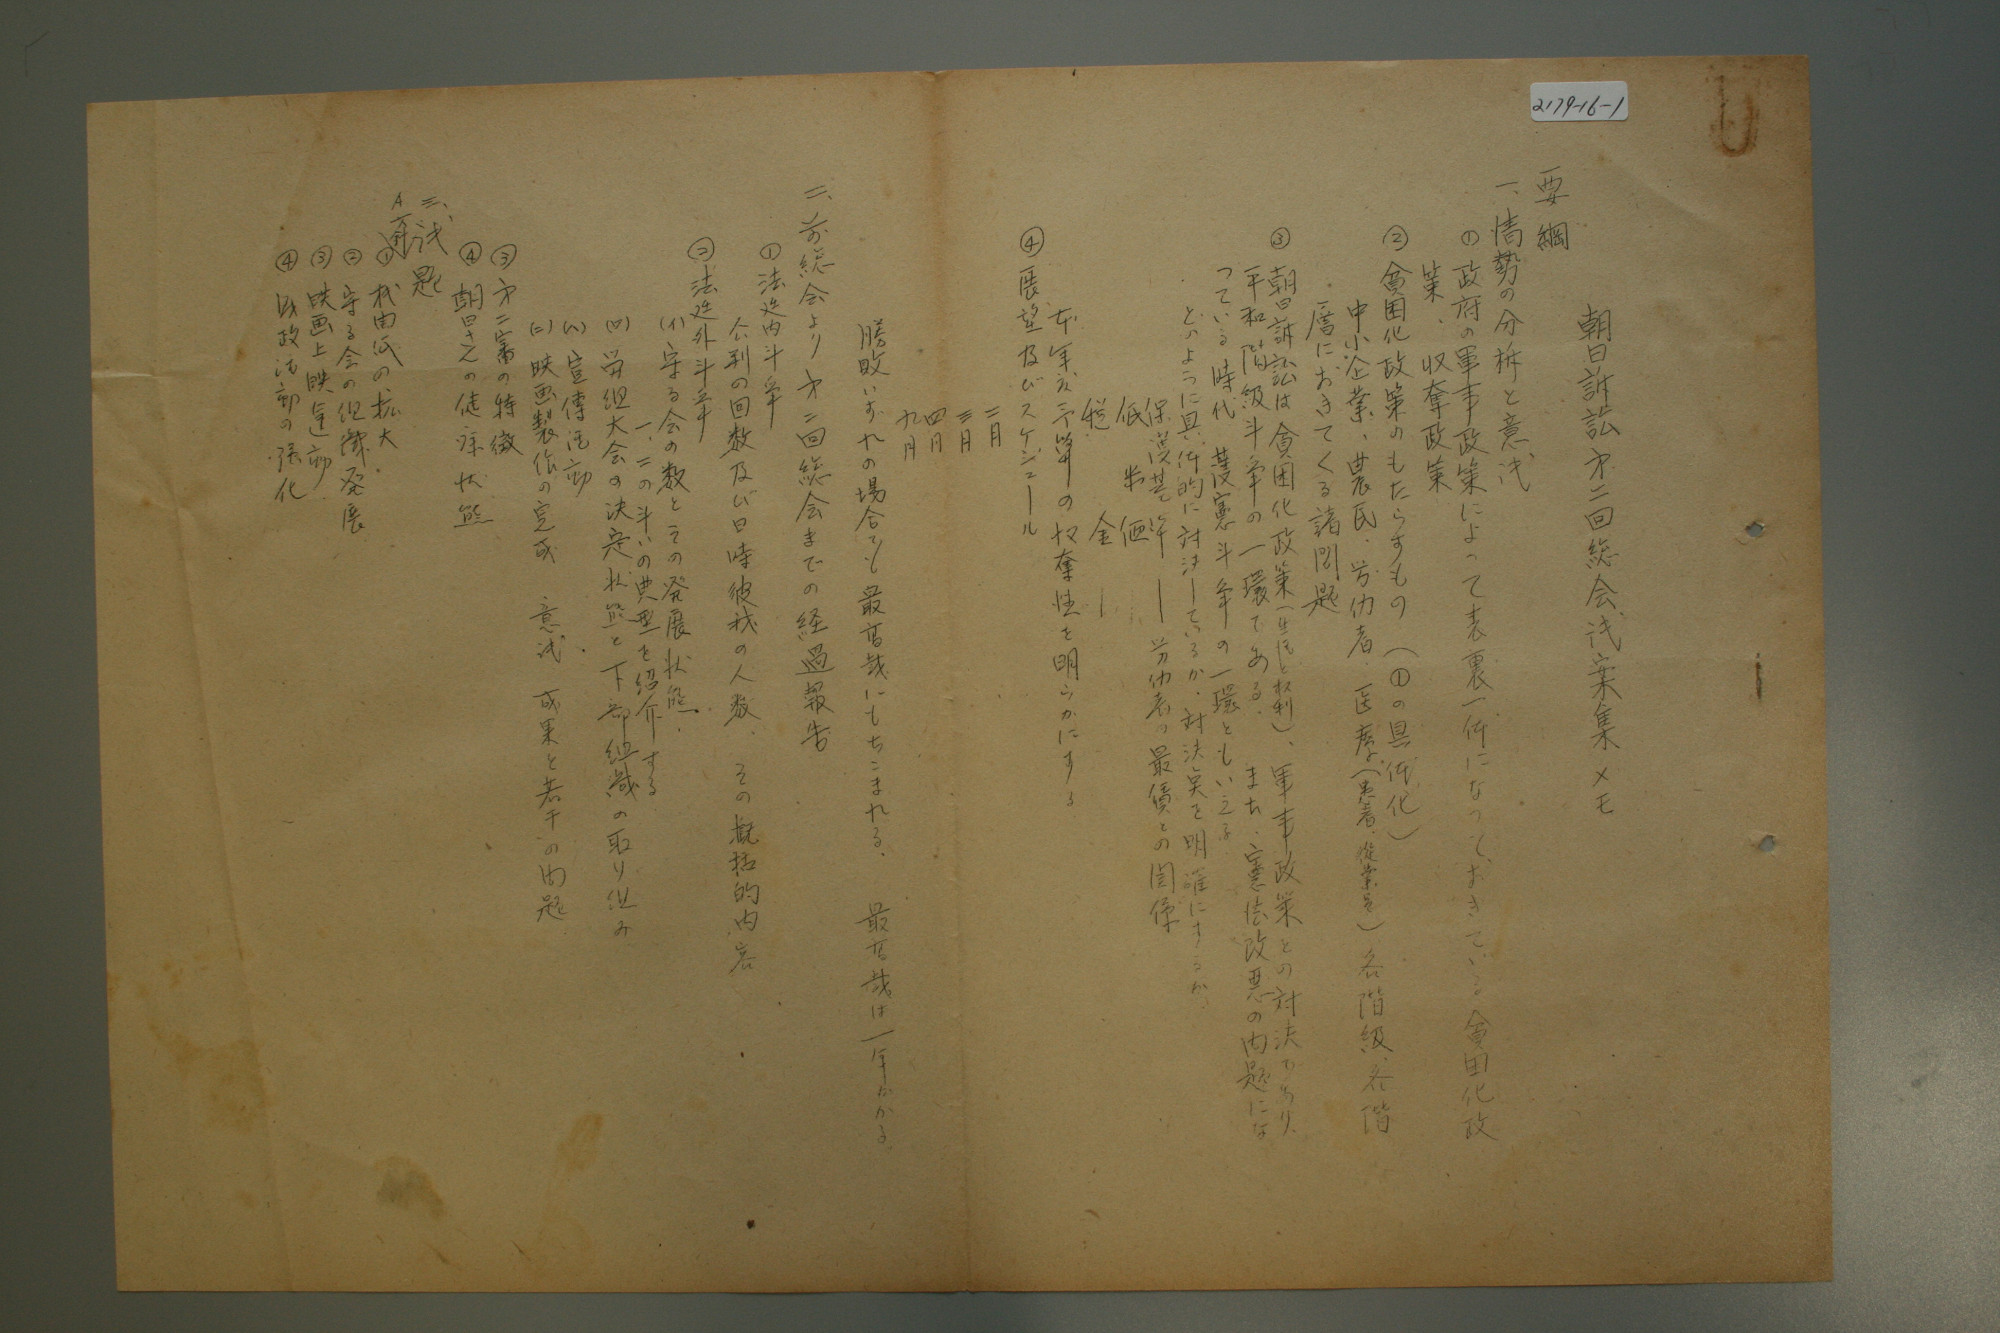 2179-16-1
朝日訴訟才二回総会議案集メモ
要綱
一、情勢の分析と意議
① 政府の軍事政策によって表裏一体になって、おきている貧困化政
策、収奪政策
② 貧困化政策のもたらすもの (①の具体化)
中小企業、農民、労仂者、医療(患者、従業員)各階級、各階
層におきてくる諸問題
③ 朝日訴訟は貧困化政策(生活と权利)、軍事政策との対決であり、
平和、階級斗争の一環である。また、憲法改悪の内題にな
っている時代、護憲斗争の一環ともいえる
どのように具体的に対決しているか、対決点を明確にするか、
保護基準 ― 労仂者の最賃との関係
低米価
税金 ―
本年度予算の収奪性を明らかにする
④ 展望及びスケジュール
二月
三月
四月
九月
勝敗いずれの場合でも最高裁にもちこまれる、最高裁は一年かかる
二、前総会より才二回総会までの経過報告
① 法廷内斗争
公判の回数及び日時彼我の人数、その概括的内容
② 法廷外斗争
(イ) 守る会の数とその発展状態、
一、二の斗いの典型を紹介する
(ロ) 労組大会の決定状態と下部組織の取り組み
(ハ) 宣傳活動
(ニ) 映画製作の完成 意議 成果と若干の内題
③ 才二審の特徴
④ 朝日さんの健康状態
三、議題
A
① 机関紙の拡大
② 守る会の組織発展
③ 映画上映運動
④ 財政活動の強化